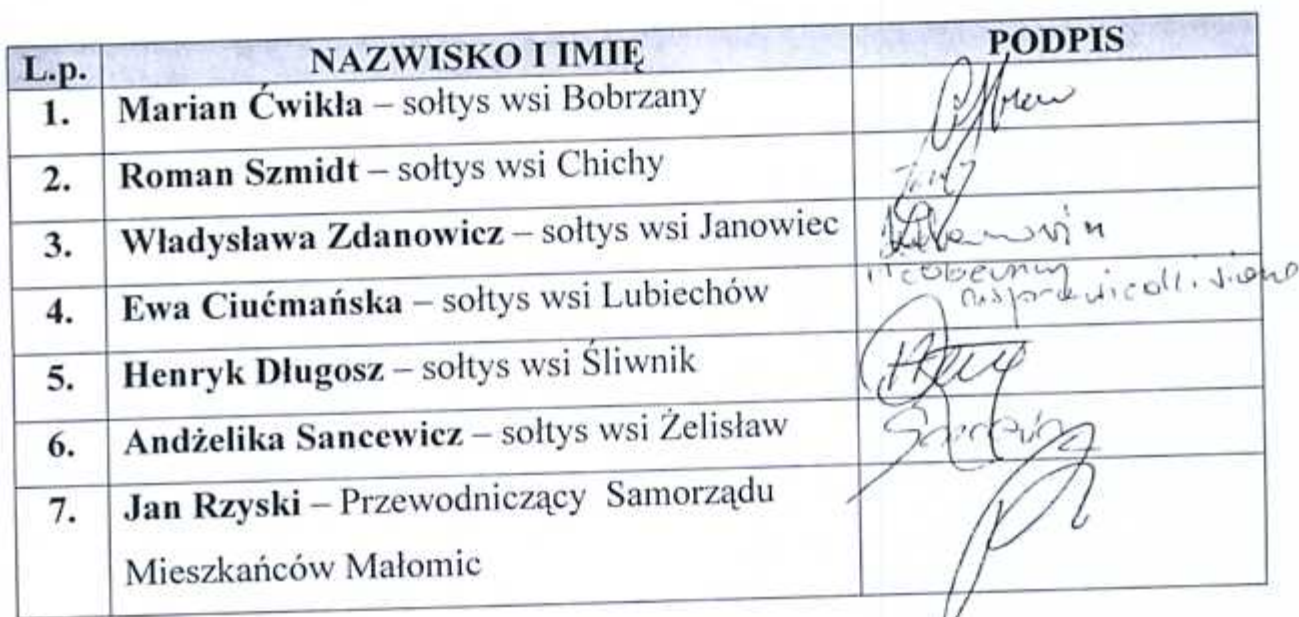 L.p. NAZWISKO I IMIĘ PODPIS
1. Marian Ćwikła – sołtys wsi Bobrzany
2. Roman Szmidt – sołtys wsi Chichy
3. Władysława Zdanowicz – sołtys wsi Janowiec
4. Ewa Ciućmańska – sołtys wsi Lubiechów nieobecny
usprawiedliwiona
5. Henryk Długosz – sołtys wsi Śliwnik
6. Andżelika Sancewicz – sołtys wsi Żelisław
7. Jan Rzyski – Przewodniczący Samorządu
Mieszkańców Małomic